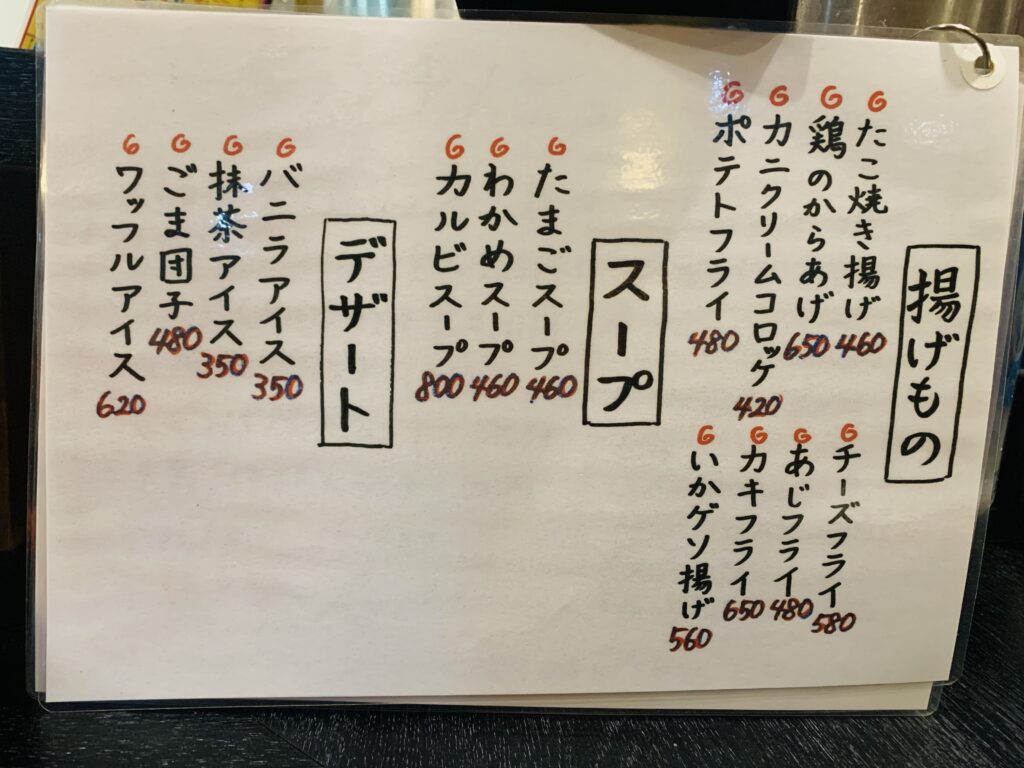 揚げもの
G たこ焼き揚げ 460
G 鶏のからあげ 650
G カニクリームコロッケ 420
G ポテトフライ 480
G チーズフライ 580
G あじフライ 480
G カキフライ 650
G いかゲソ揚げ 560
スープ
G たまごスープ 460
G わかめスープ 460
G カルビスープ 800
デザート
G バニラアイス 350
G 抹茶アイス 350
G ごま団子 480
G ワッフルアイス 620